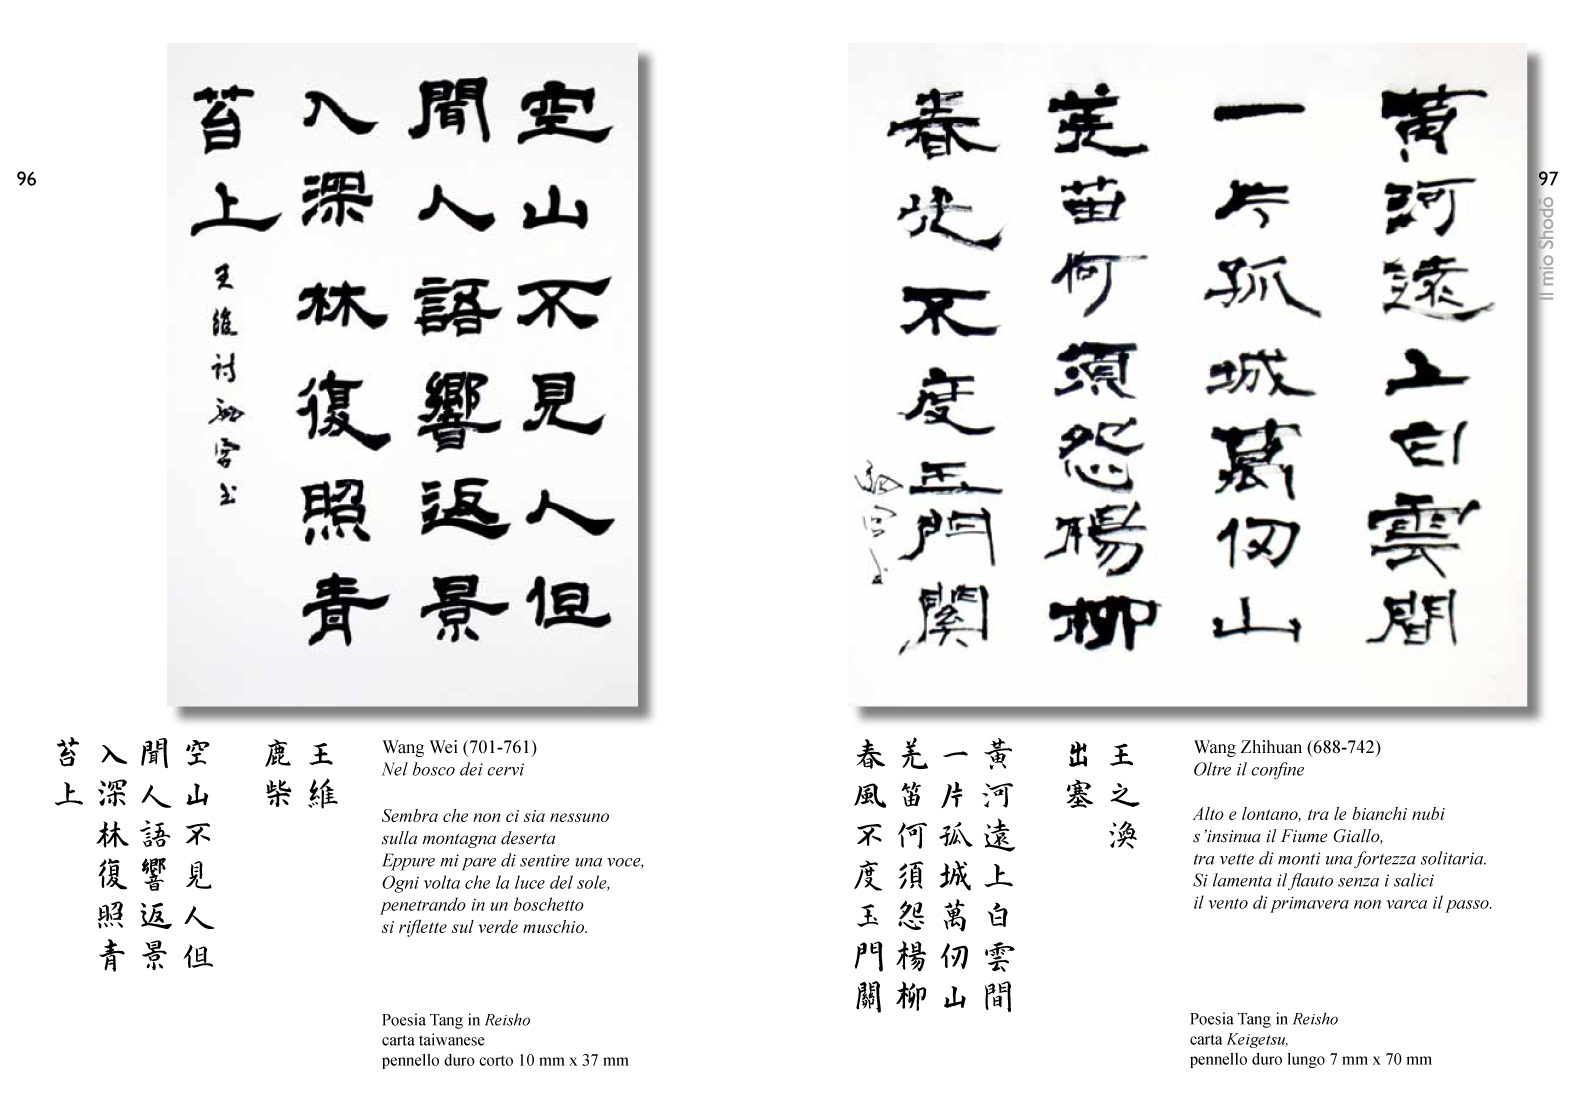 96
空山不見人但
聞人語響返景
入深林復照青
苔上
王維詩
王維
鹿柴
空山不見人但
聞人語響返景
入深林復照青
苔上
Wang Wei (701-761)
Nel bosco dei cervi
Sembra che non ci sia nessuno
sulla montagna deserta
Eppure mi pare di sentire una voce,
Ogni volta che la luce del sole,
penetrando in un boschetto
si riflette sul verde muschio.
Poesia Tang in Reisho
carta taiwanese
pennello duro corto 10 mm x 37 mm
97
Il mio Shodō
黃河遠上白雲間
一片孤城萬仞山
羌笛何須怨楊柳
春光不度玉門關
王之渙
出塞
黃河遠上白雲間
一片孤城萬仞山
羌笛何須怨楊柳
春風不度玉門關
Wang Zhihuan (688-742)
Oltre il confine
Alto e lontano, tra le bianchi nubi
s’insinua il Fiume Giallo,
tra vette di monti una fortezza solitaria.
Si lamenta il flauto senza i salici
il vento di primavera non varca il passo.
Poesia Tang in Reisho
carta Keigetsu,
pennello duro lungo 7 mm x 70 mm